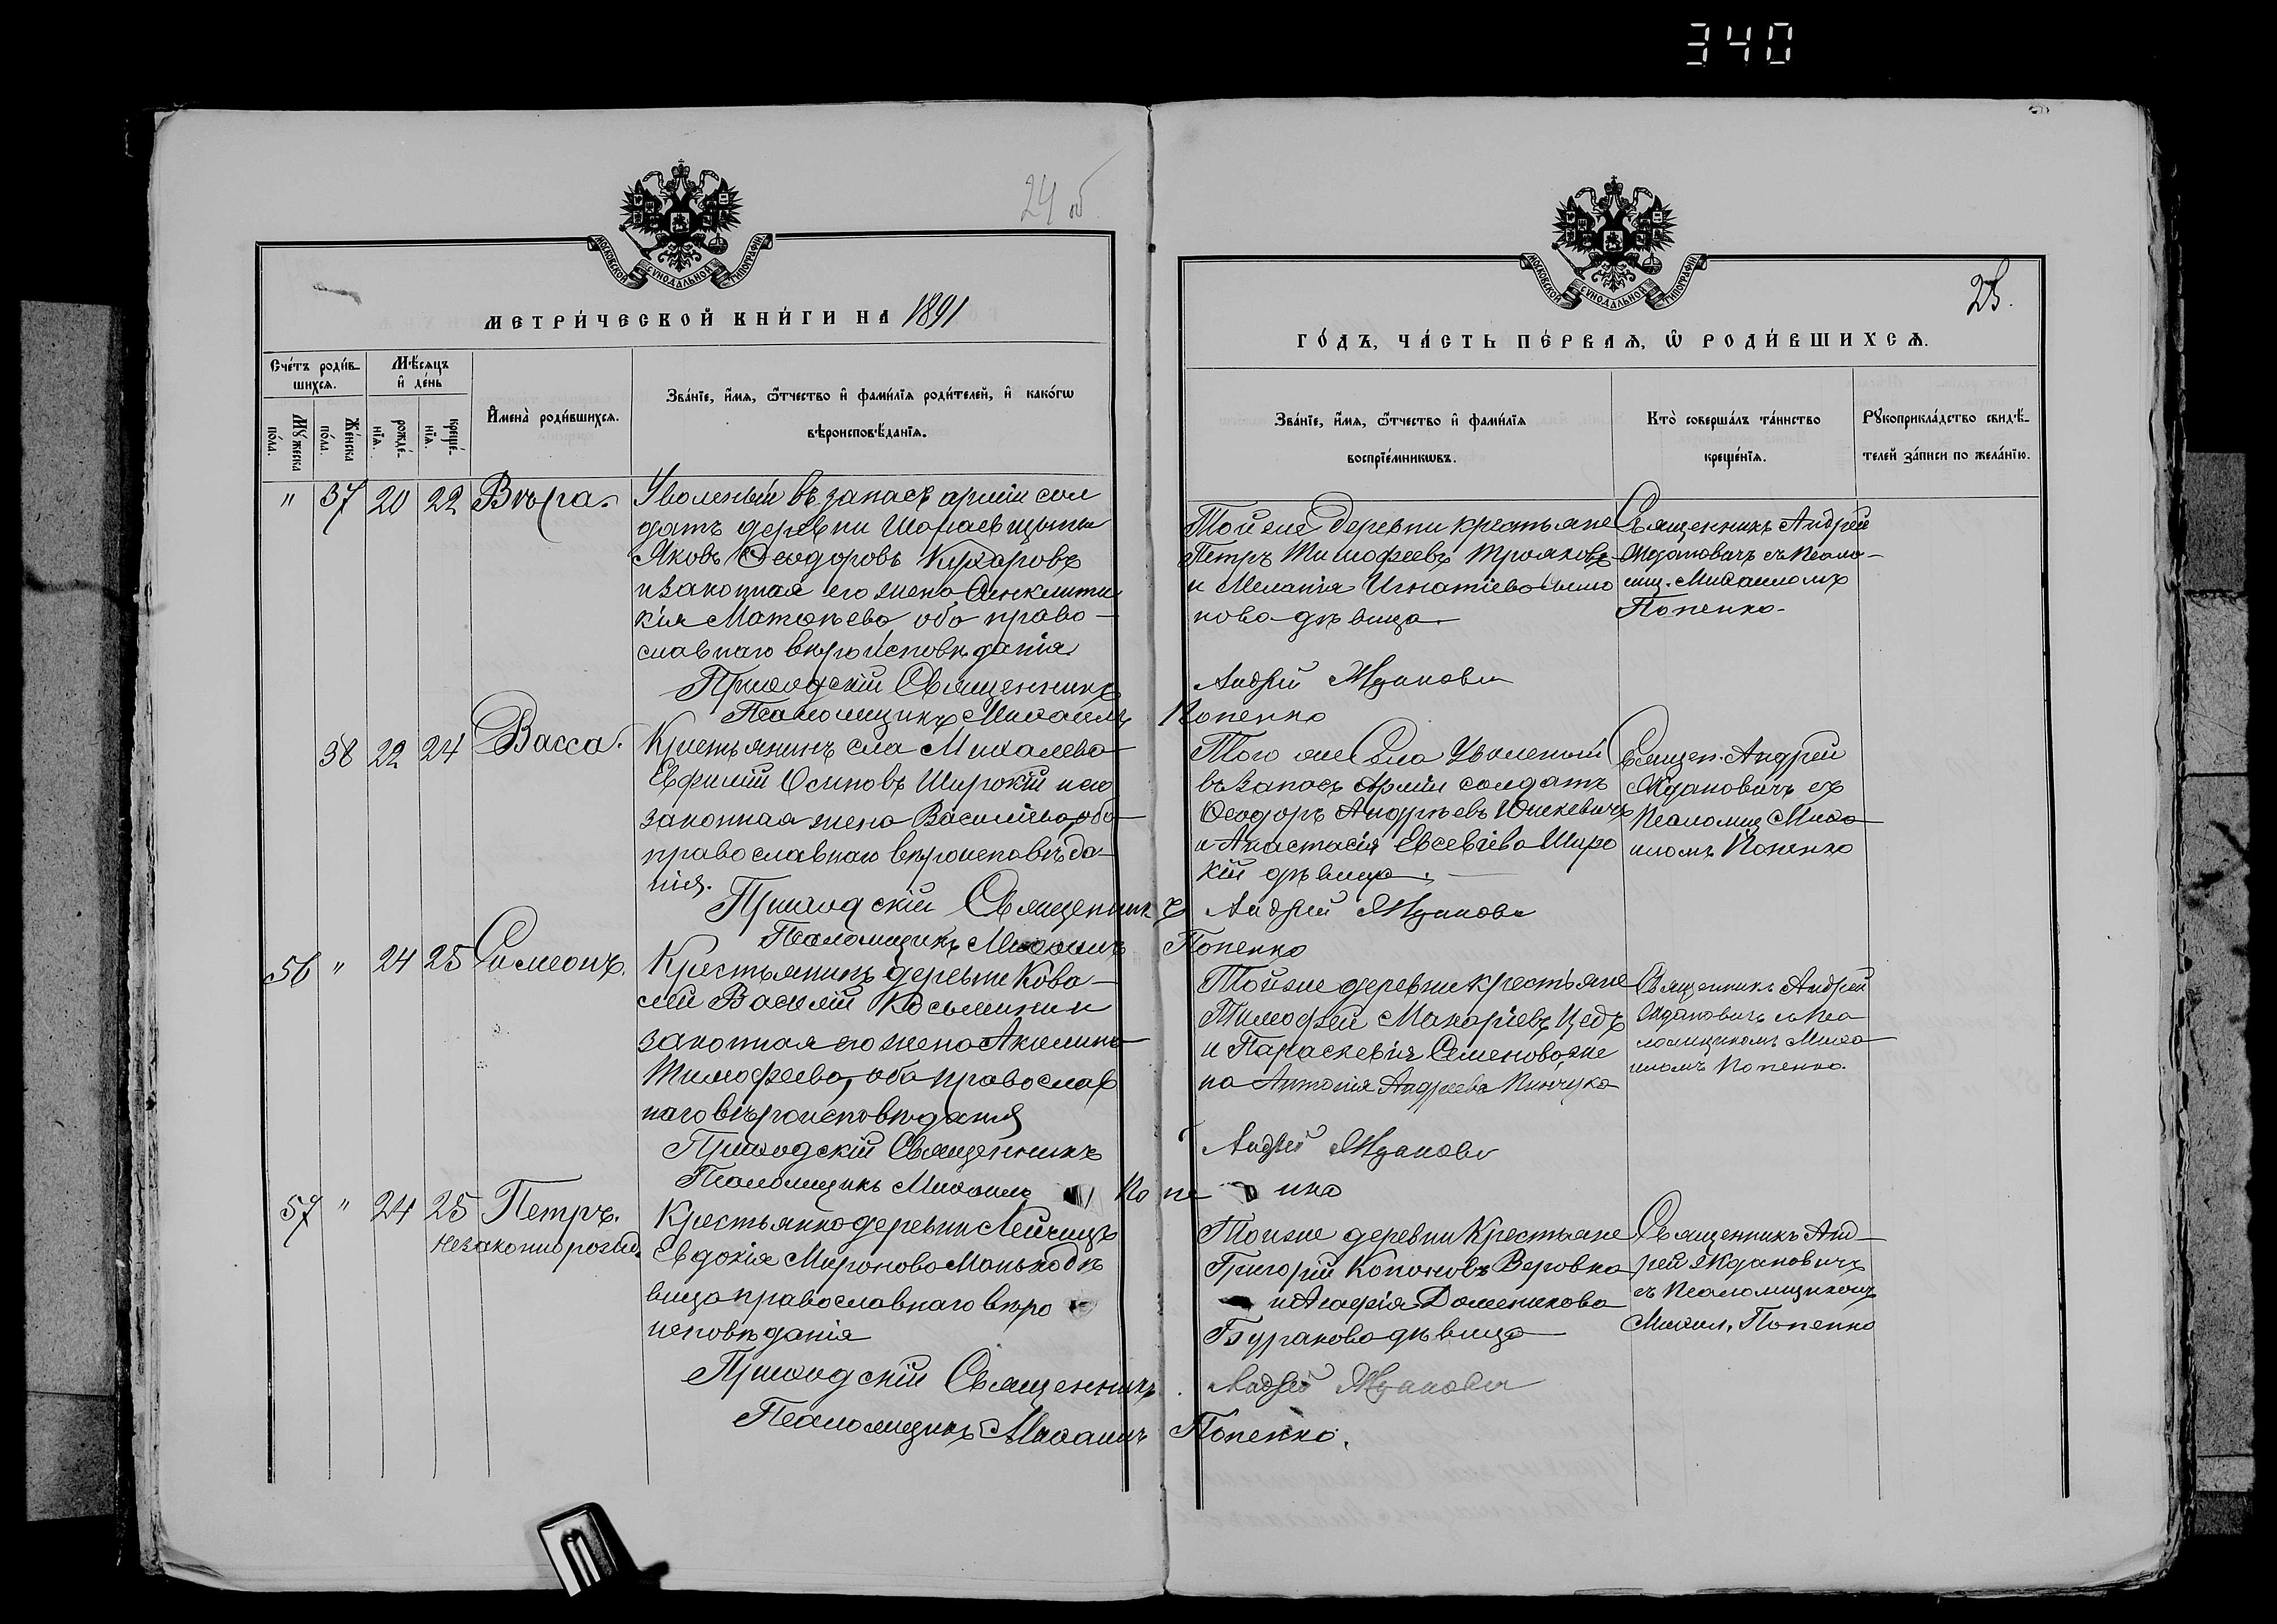 340
24 об
МОСКОВСКОЙ СѴНОДАЛЬНОЙ ТИПОГРАФІИ
МЕТРИ́ЧЕСКОЙ КНИ́ГИ НА 1891
Сче́тъ роди́в-
шихсѧ.
Мѣ́сѧцъ
и҆ де́нь
Мꙋ́жеска
по́ла.
Же́нска
по́ла.
рожде́-
нїѧ.
креще́-
нїѧ.
И҆мена̀ роди́вшихсѧ.
Зва́нїе, и҆́мѧ, ѻ҆́тчество и҆ фами́лїѧ роди́телей, и҆ како́гѡ
вѣроисповѣ́данїѧ.
" 37 20 22 Вѣра.
Уволеный въ запасъ арміи сол
датъ деревни
Яковъ Ѳеодоровъ Кухаровъ
и законная его жена Синклити
кія Матѳѣева оба право-
славнаго вѣроисповѣданія
Приходскій Священникъ
Псаломщикъ Михаилъ
38 22 24 Васса.
Крестьянинъ сла Михалева
Евфимій Осиповъ Широкій и его
законная жена Василіева, оба
православнаго вѣроисповѣда-
нія.
Приходскій Священникъ
Псаломщикъ Михаилъ
56 " 24 25 Симеонъ.
Крестьянинъ деревни Кова-
лей Василій Косьминъ и
законная его жена Акилина
Тимофеева, оба православ
наго вѣроисповѣданія
Приходскій Священникъ
Псаломщикъ Михаилъ
57 " 24 25 Петръ.
незаконнорожд.
Крестьянка деревни Лейчицъ
Евдокія Миронова Манько дѣ
вица православнаго вѣро
исповѣданія
Приходскій Священникъ
Псаломщикъ Михаилъ
МОСКОВСКОЙ СѴНОДАЛЬНОЙ ТИПОГРАФІИ
25.
ГО́ДЪ, ЧА́СТЬ ПЕ́РВАѦ, Ѡ҆ РОДИ́ВШИХСѦ.
Зва́нїе, и҆́мѧ, ѻ҆́тчество и҆ фами́лїѧ
воспрїе́мникѡвъ.
Кто̀ соверша́лъ та́инство
креще́нїѧ.
Рꙋкоприкла́дство свидѣ́-
телей за́писи по жела́нїю.
Той же деревни крестьяне
Петръ Тимофеевъ Трояновъ
и Меланія Игнатіева
нова дѣвица
Священникъ Андрей
Ждановичъ съ Псало-
мщ. Михаиломъ
Попенко.
Андрей Жданови
Попенко
Того же Села Уволеный
въ запасъ Арміи солдатъ
Ѳеодоръ Андреевъ Юшкевичъ
и Анастасія Евсевіева Широ
кій дѣвица.
Священ. Андрей
Ждановичъ съ
Псаломщ Миха
иломъ Попенко
Андрей Жданови
Попенко
Той же деревни крестьяне
Тимофей Макаріевъ Цедъ
и Параскевія Семенова, же
на Антонія Андреева Пинчука
Священникъ Андрей
Ждановичъ съ Пса
ломщикомъ Миха
иломъ Попенко.
Андрей Жданови
Попенко
Той же деревни Крестьяне
Григорій Кононовъ Веровка
и Агафія Доменикова
Буракова дѣвица
Священникъ Анд-
рей Ждановичъ
съ Псаломщикомъ
Михаил. Попенко
Андрей Жданови
Попенко.